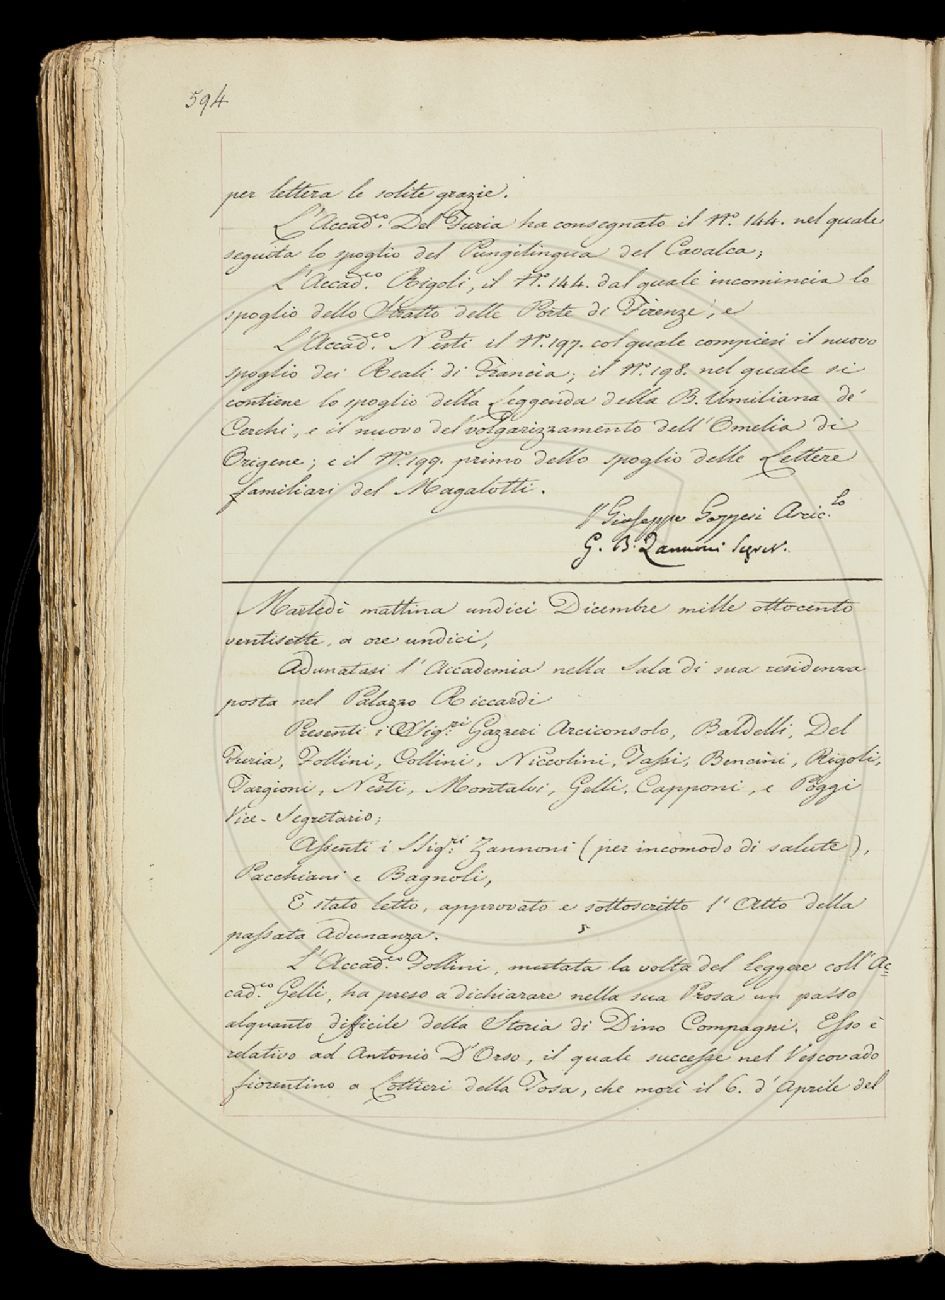 594
per lettera le solite grazie.
L'Accad.co Del Furia ha consegnato il N.o 144. nel quale
seguita lo spoglio del Pungilingua del Cavalca;
L'Accad.co Rigoli, il N.o 144. dal quale incomincia lo
spoglio dello Stratto delle Porte di Firenze; e
L'Accad.co Nesti il N.o 197. col quale compiesi il nuovo
spoglio dei Reali di Francia; il N.o 198. nel quale si
contiene lo spoglio della Leggenda della B. Umiliana de'
Cerchi, e il nuovo del volgarizzamento dell'Omelia di
Origene; e il N.o 199. primo dello spoglio delle Lettere
familiari del Magalotti.
Giuseppe Gazzeri Arcic.lo
G. B. Zannoni Segret.
Martedì mattina undici Dicembre mille ottocento
ventisette, a ore undici,
Adunatasi l'Accademia nella Sala di sua residenza
posta nel Palazzo Riccardi
Presenti i Sig.ri Gazzeri Arciconsolo, Baldelli, Del
Furia, Follini, Collini, Niccolini, Tassi, Bencini, Rigoli,
Targioni, Nesti, Montalvi, Gelli, Capponi, e Poggi
Vice-Segretario;
Assenti i Sig.ri Zannoni (per incomodo di salute),
Pacchiani e Bagnoli,
È stato letto, approvato e sottoscritto l'Atto della
passata Adunanza.
L'Accad.co Follini, mutata la volta del leggere coll'Ac=
cad.co Gelli, ha preso a dichiarare nella sua Prosa un passo
alquanto difficile della Storia di Dino Compagni. Esso è
relativo ad Antonio D'Orso, il quale successe nel Vescovado
fiorentino a Lottieri della Tosa, che morì il 6. d'Aprile del